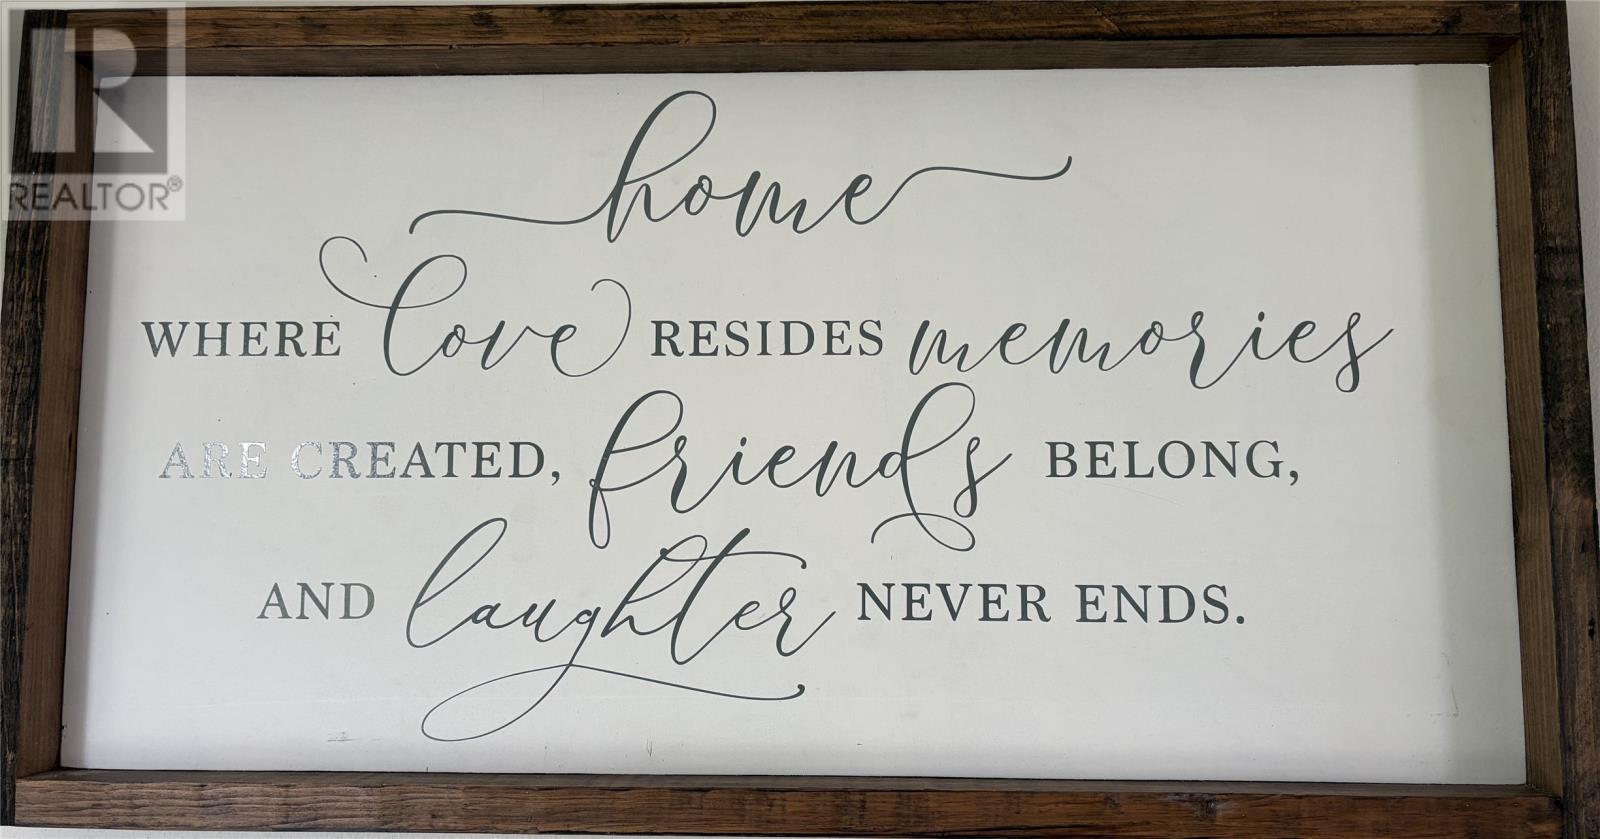 REALTOR®
home
WHERE love RESIDES memories
ARE CREATED, friends BELONG,
AND laughter NEVER ENDS.